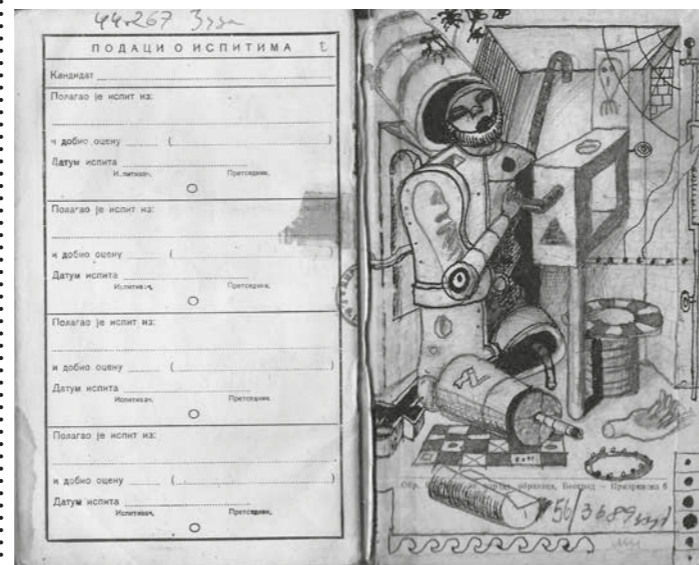 44-267
ПОДАЦИ О ИСПИТИМА
Кандидат
Полагао је испит из:
и добио оцену ( )
Датум испита
Испитивач, Претседник,
Полагао је испит из:
и добио оцену ( )
Датум испита
Испитивач, Претседник,
Полагао је испит из:
и добио оцену ( )
Датум испита
Испитивач, Претседник,
Полагао је испит из:
и добио оцену ( )
Датум испита
Испитивач, Претседник,
Обр. образаца, Београд — Призренска 6
56/3689